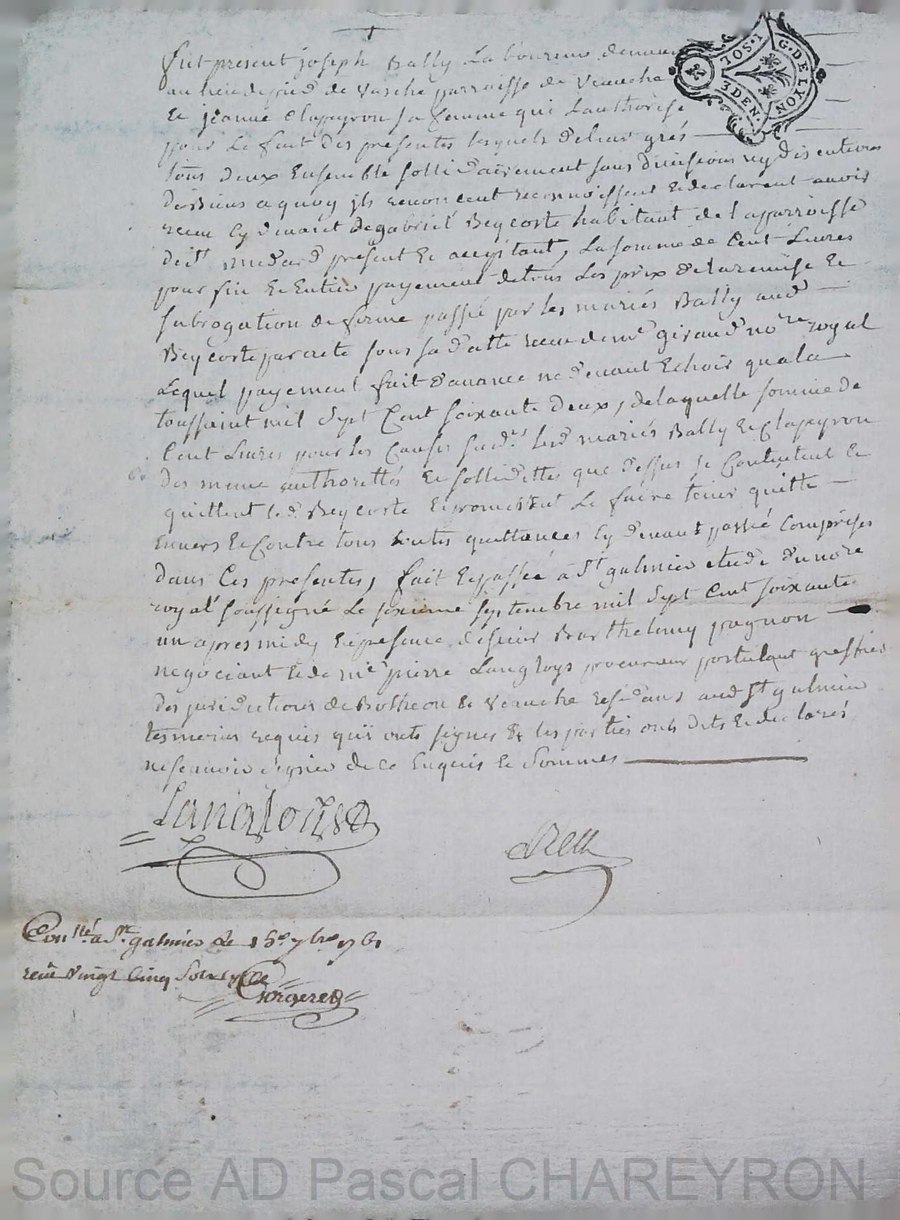 G. DE LYON
1. SOL
3 DEN.
fut present joseph Bally Laboureur demeurant
au lieu de vasche parroisse de Veauche
Et jeanne Clapeyron sa femme qui Lauthorise
pour Le fait des presentes lesquels de leur grés
tous deux Ensemble sollidairement sans division ny discution
de Biens a quoy ils renoncent reconnoissent Et declarent avoir
receu cy devant de gabriel Beycoste habitant de la parroisse
de st medard present Et acceptant, La somme de Cent Livres
pour fin Et Entier payement de tous Les prix de la remise Et
subrogation de ferme passé par les mariés Bally aud
Beycoste par acte sous sa datte receu de me giraud nore royal
Lequel payement fait davance ne devant Echoir qua la
toussaint mil sept Cent soixante deux, de laquelle somme de
Cent Livres pour les Causes sud. lesd mariés Bally Et Clapeyron
des meme authorittés Et sollidittes que dessus se Contentent Et
quittent led. Beycoste Et promettent Le faire tenir quitte
Envers Et Contre tous toutes quittances cy devant passé Comprises
dans Ces presentes, fait Et passé a St galmier etude du nore
royal soussigné Le sixieme septembre mil sept Cent soixante
un apres midy En presence de sieur Barthelemy pagnon
negociant Et de me pierre Langloys procureur postulant greffier
des juridictions de Botheon Et Veauche residans aud St galmier
tesmoins requis qui ont signes Et les parties ont dits Et declarés
ne scavoir signer de ce Enquis Et Sommes
Langloys
Conllé a St. galmier le 7bre 1761
receu vingt Cinq sols
Source AD Pascal CHAREYRON